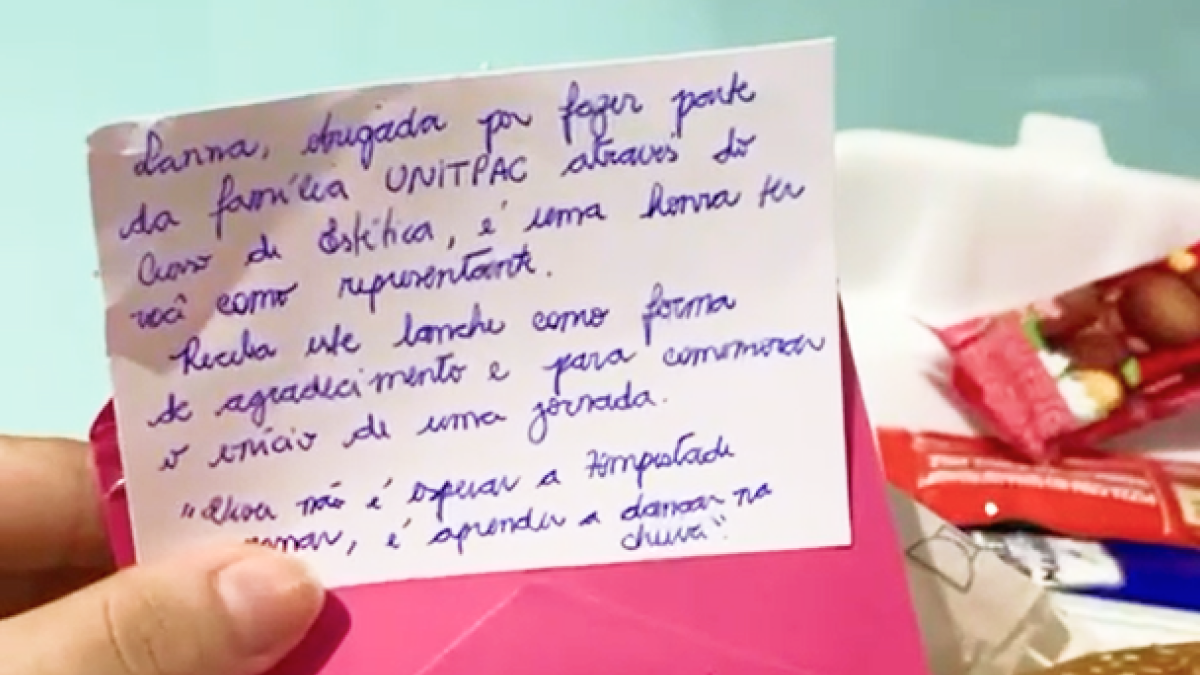 Lanna, obrigada por fazer parte
da família UNITPAC através do
Curso de Estética, é uma honra ter
você como representante.
Receba este lanche como forma
de agradecimento e para comemorar
o início de uma jornada.
"Viver não é esperar a tempestade
, é aprender a dançar na
chuva".